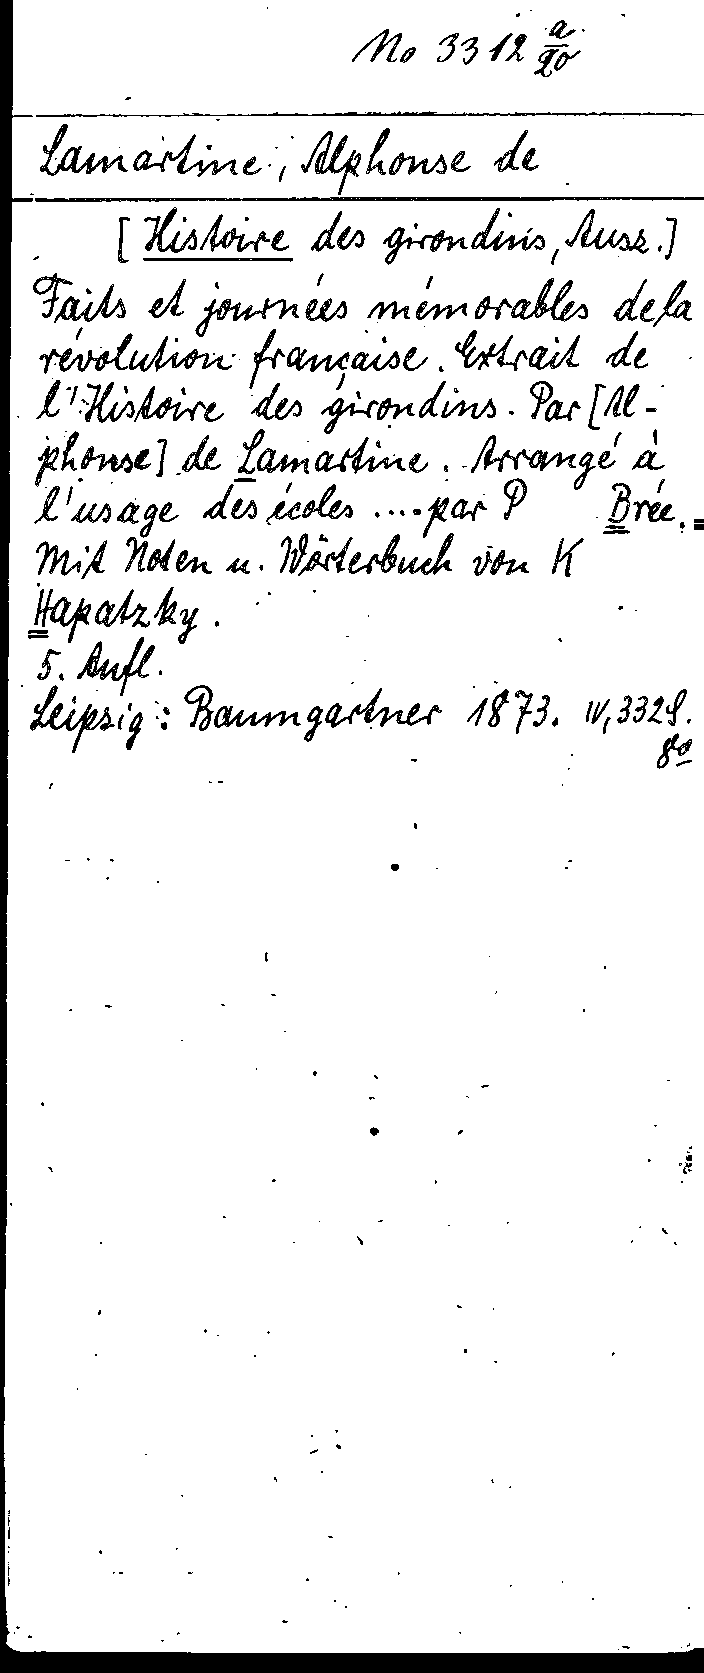 No 3312 a/20
Lamartine, Alphonse de
[Histoire des girondins, Ausz.]
Faits et journées mémorables de la
révolution française. Extrait de
l'Histoire des girondins. Par [Al-
phonse] de Lamartine. Arrangé à
l'usage des écoles .... par P Brée.
Mit Noten u. Wörterbuch von K
Hapatzky.
5. Aufl.
Leipzig: Baumgartner 1873. IV, 332 S.
8º